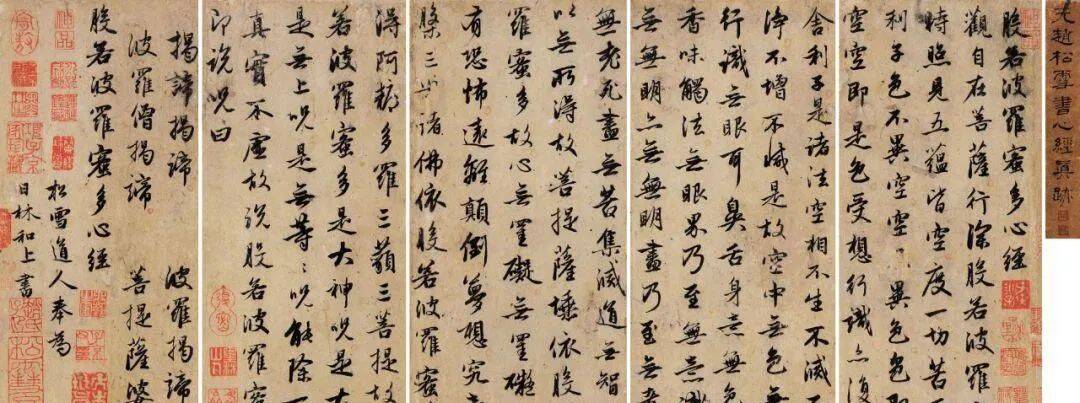 元趙松雪書心經真跡
般若波羅蜜多心經
觀自在菩薩行深般若波羅
時照見五蘊皆空度一切苦
利子色不異空空〻異色色即
空空即是色受想行識亦復
舍利子是諸法空相不生不滅
淨不增不減是故空中無色無
行識無眼耳鼻舌身意無色
香味觸法無眼界乃至無意
無無明亦無無明盡乃至無
無老死盡無苦集滅道無智
以無所得故菩提薩埵依般
羅蜜多故心無罣礙無罣礙
有恐怖遠離顛倒夢想究
槃三世諸佛依般若波羅蜜
得阿耨多羅三藐三菩提故
若波羅蜜多是大神呪是大
是無上呪是無等〻呪能除一
真實不虛故說般若波羅蜜
即說呪曰
揭諦揭諦 波羅揭諦
波羅僧揭諦 菩提薩婆
般若波羅蜜多心經
松雪道人奉為
日林和上書